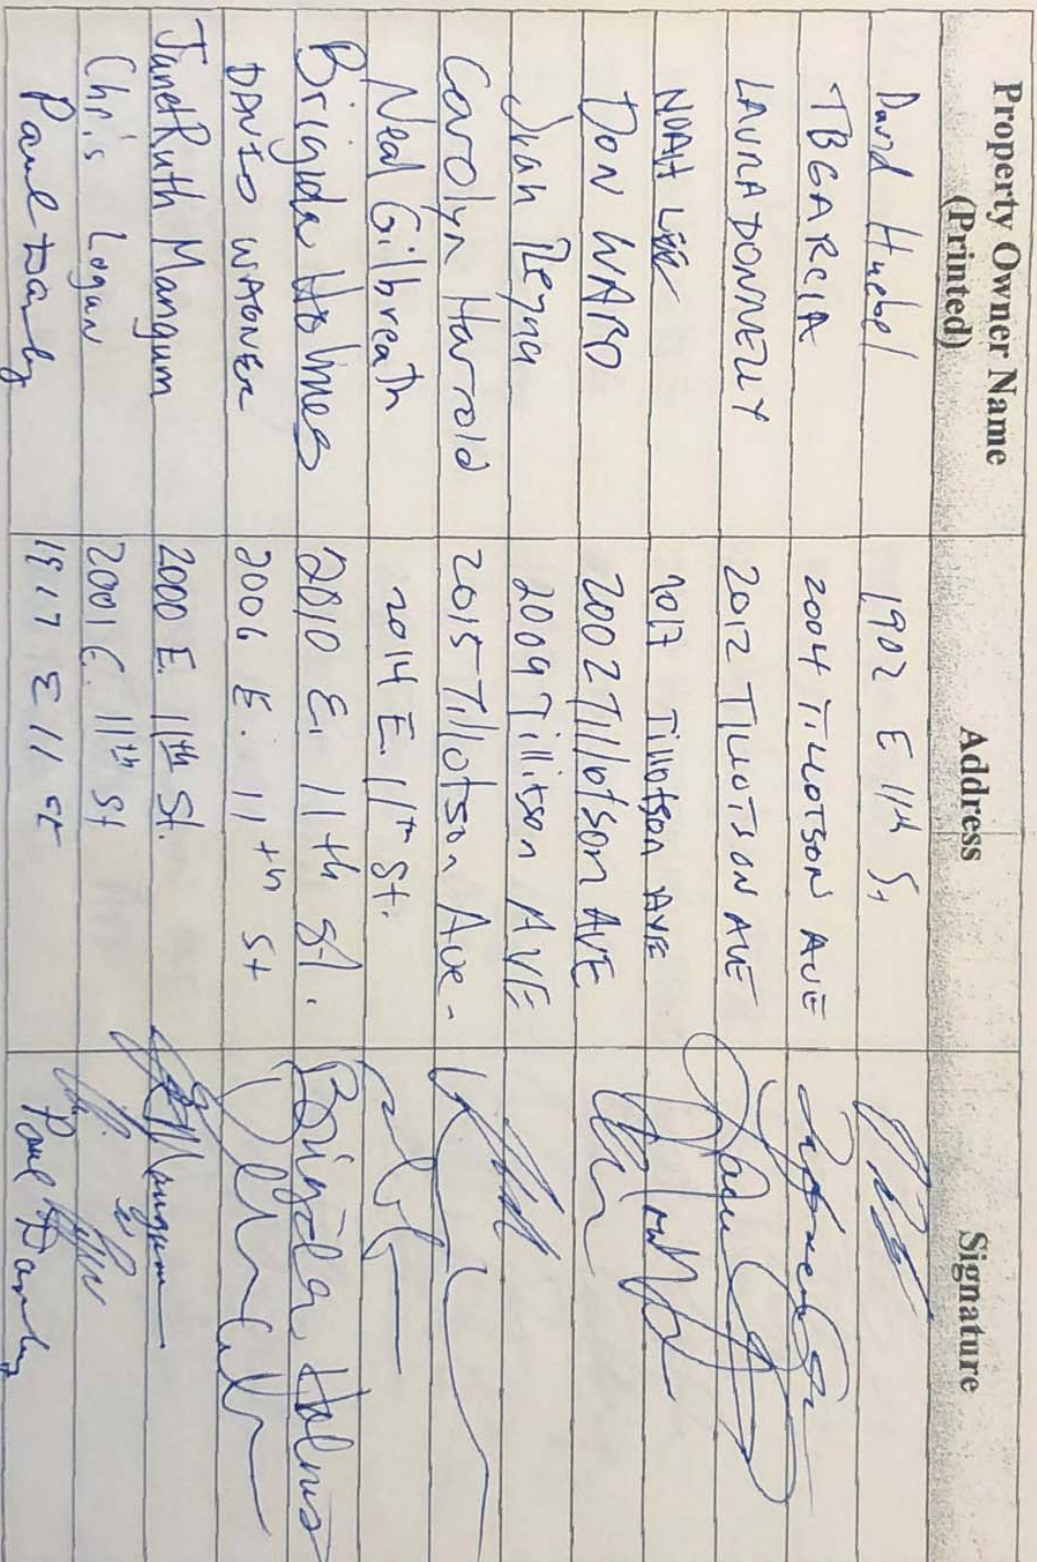 Property Owner Name (Printed) Address Signature
David Huebel 1902 E 11th St
TBGARCIA 2004 TILLOTSON AVE
LAURA DONNELLY 2012 TILLOTSON AVE
NOAH 2017 Tillotson AVE
DON WARD 2002 Tillotson AVE
Jian Reyna 2009 Tillitson AVE
Carolyn Harrold 2015 Tillotson Ave.
Neal Gilbreath 2014 E. 11th St.
Brigida Holmes 2010 E. 11th St. Brigida Holmes
DAVID WAGNER 2006 E. 11th St
JanetRuth Mangum 2000 E. 11th St. Mangum
Chris Logan 2001 E. 11th St
Paul Darby 1917 E 11 St Paul Darby